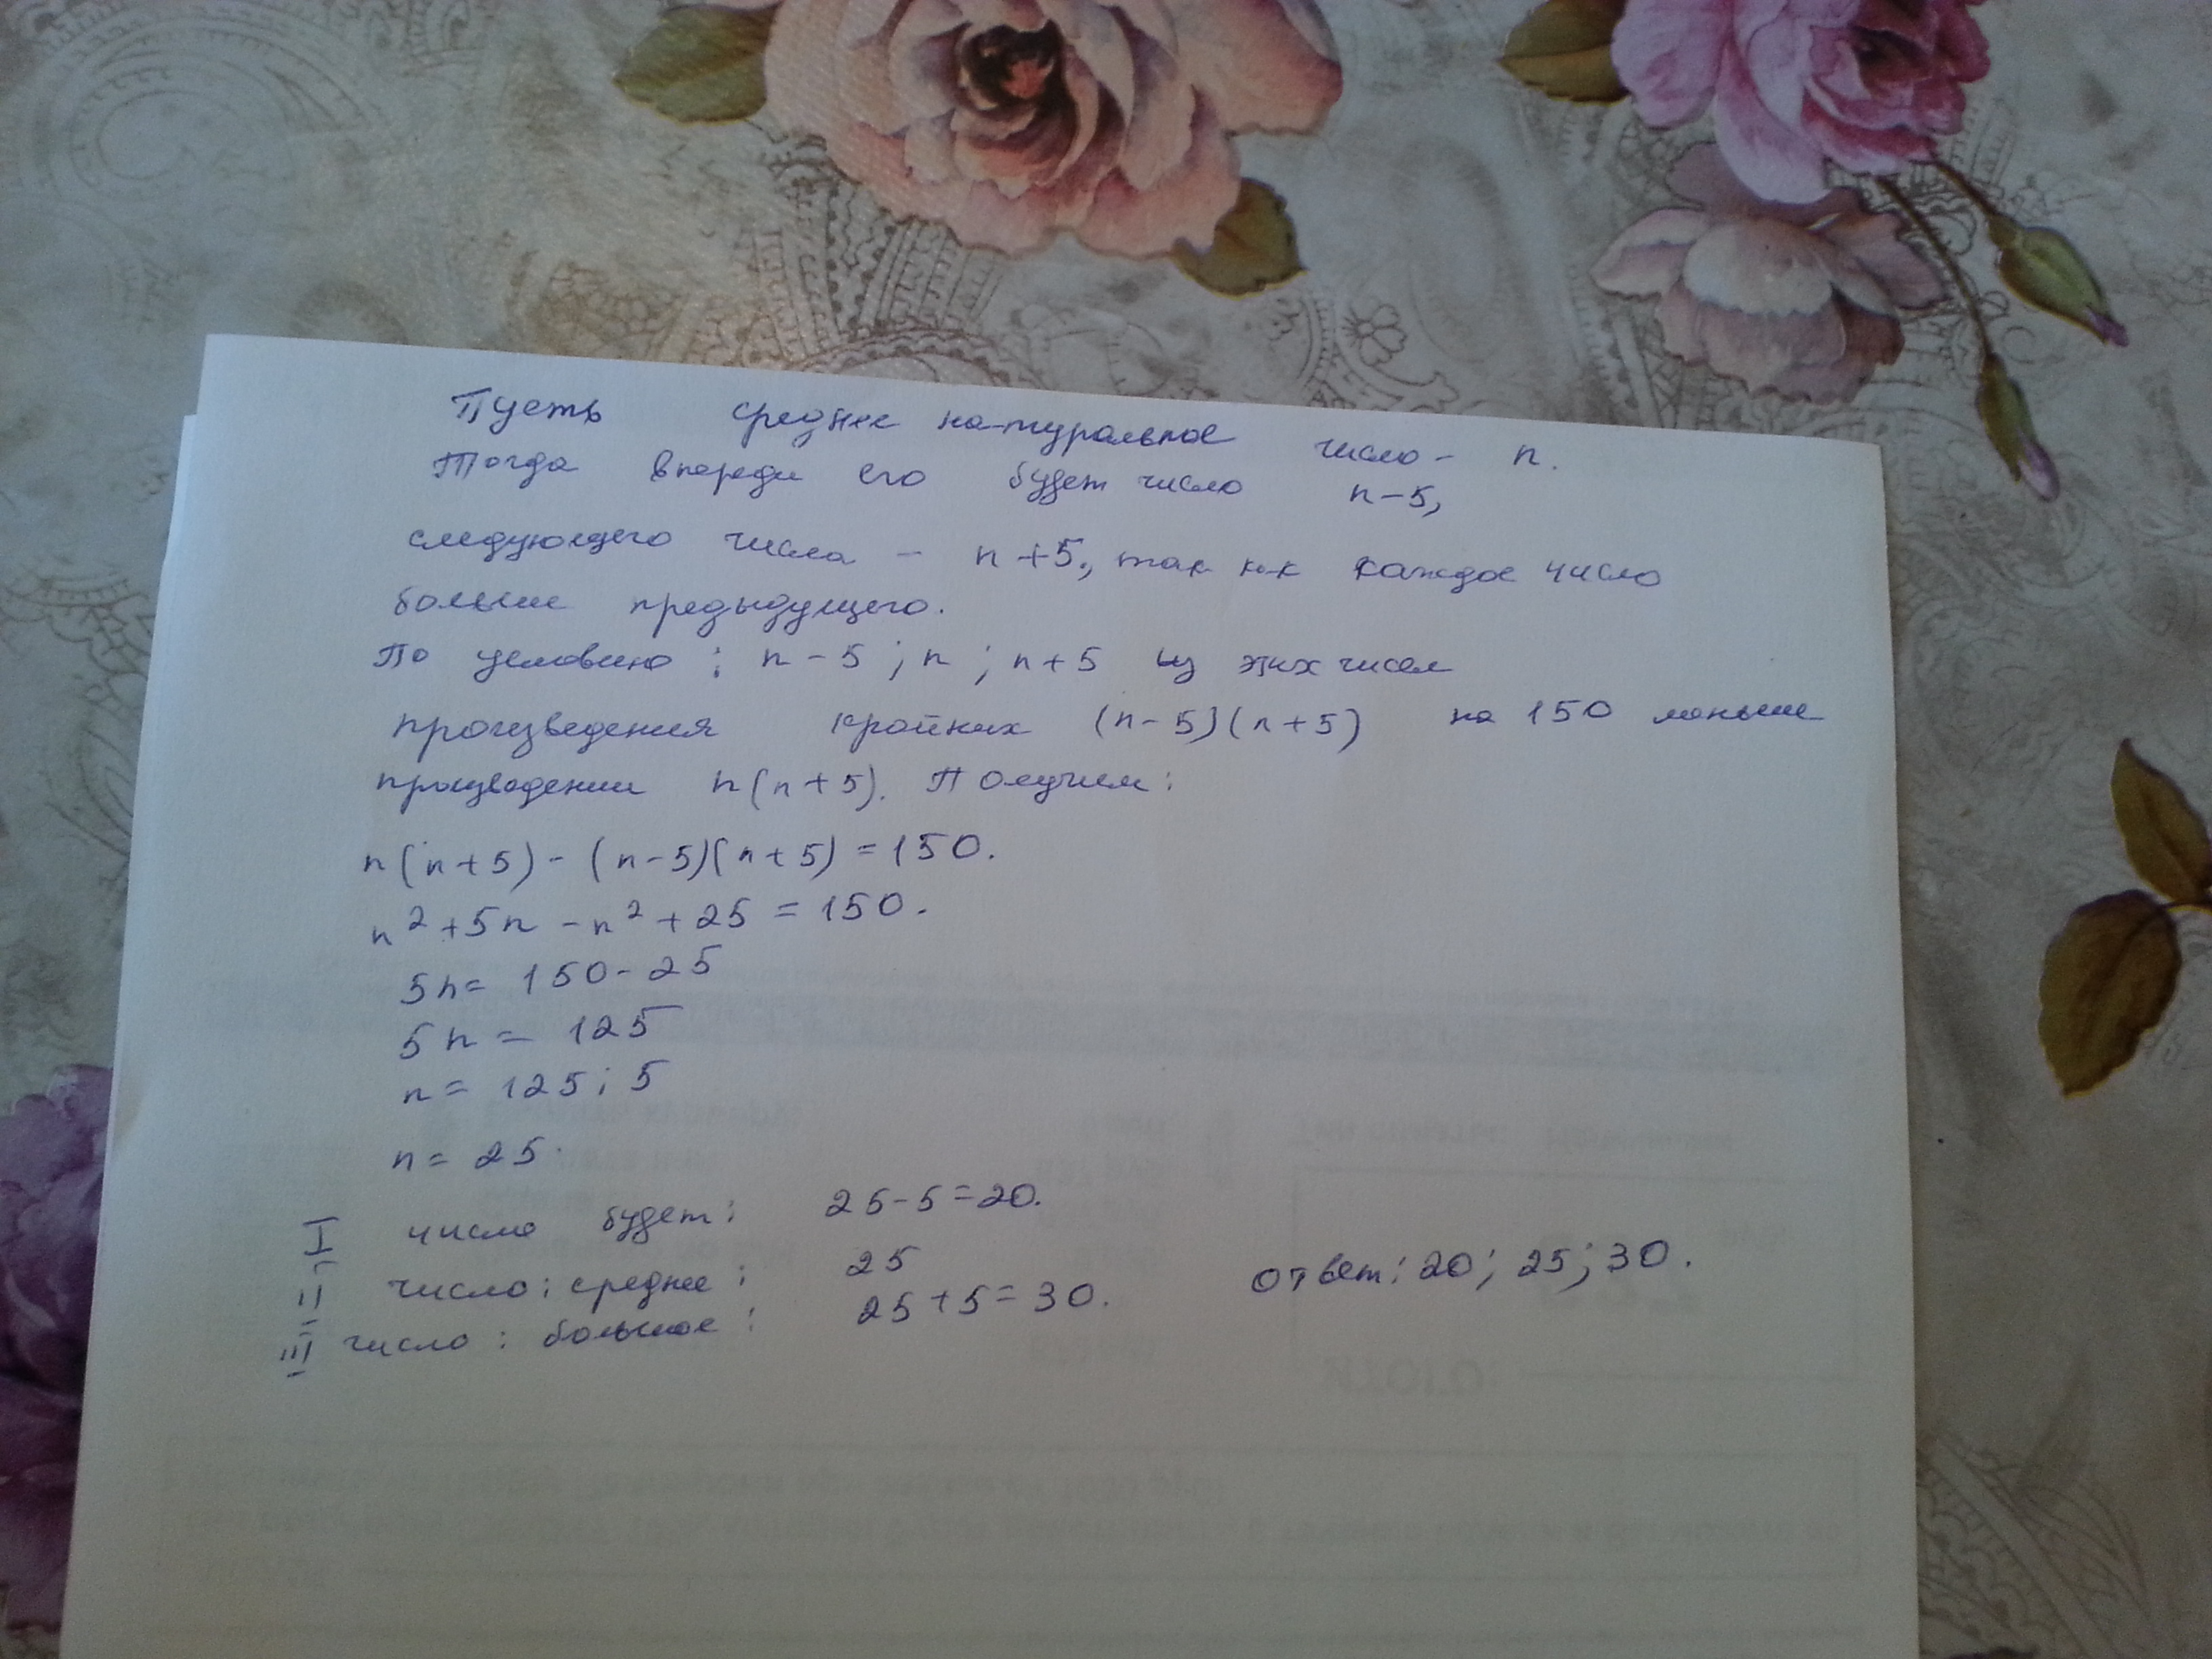 Пусть среднее натуральное число - n.
Тогда впереди его будет число n-5,
следующего числа - n+5, так как каждое число
больше предыдущего.
По условию: n-5; n; n+5 из этих чисел
произведения крайних (n-5)(n+5) на 150 меньше
произведении n(n+5). Получим:
n(n+5)-(n-5)(n+5)=150.
n²+5n-n²+25=150.
5n=150-25
5n=125
n=125:5
n=25.
I число будет: 25-5=20.
II число: среднее: 25
III число: большое: 25+5=30.
Ответ: 20; 25; 30.